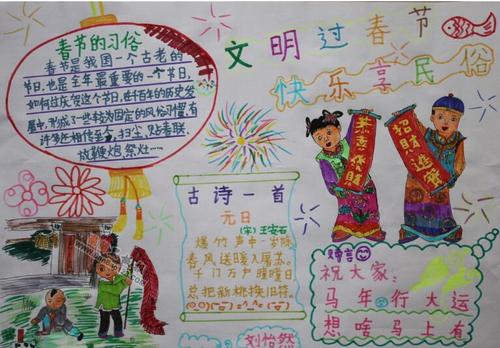 文明过春节
快乐享民俗
春节的习俗
春节是我国一个古老的
节日,也是全年最重要的一个节日,
如何过庆贺这个节,在千百年的历史发
展中,形成了一些较为固定的风俗习惯,有
许多还相传至今,扫尘,贴春联,
放鞭炮,祭灶…
恭喜發財
招財進寶
古诗一首
元日
(宋)王安石
爆竹声中一岁除,
春风送暖入屠苏。
千门万户曈曈日
总把新桃换旧符。
祝大家:
马年行大运
想啥马上有
刘怡然